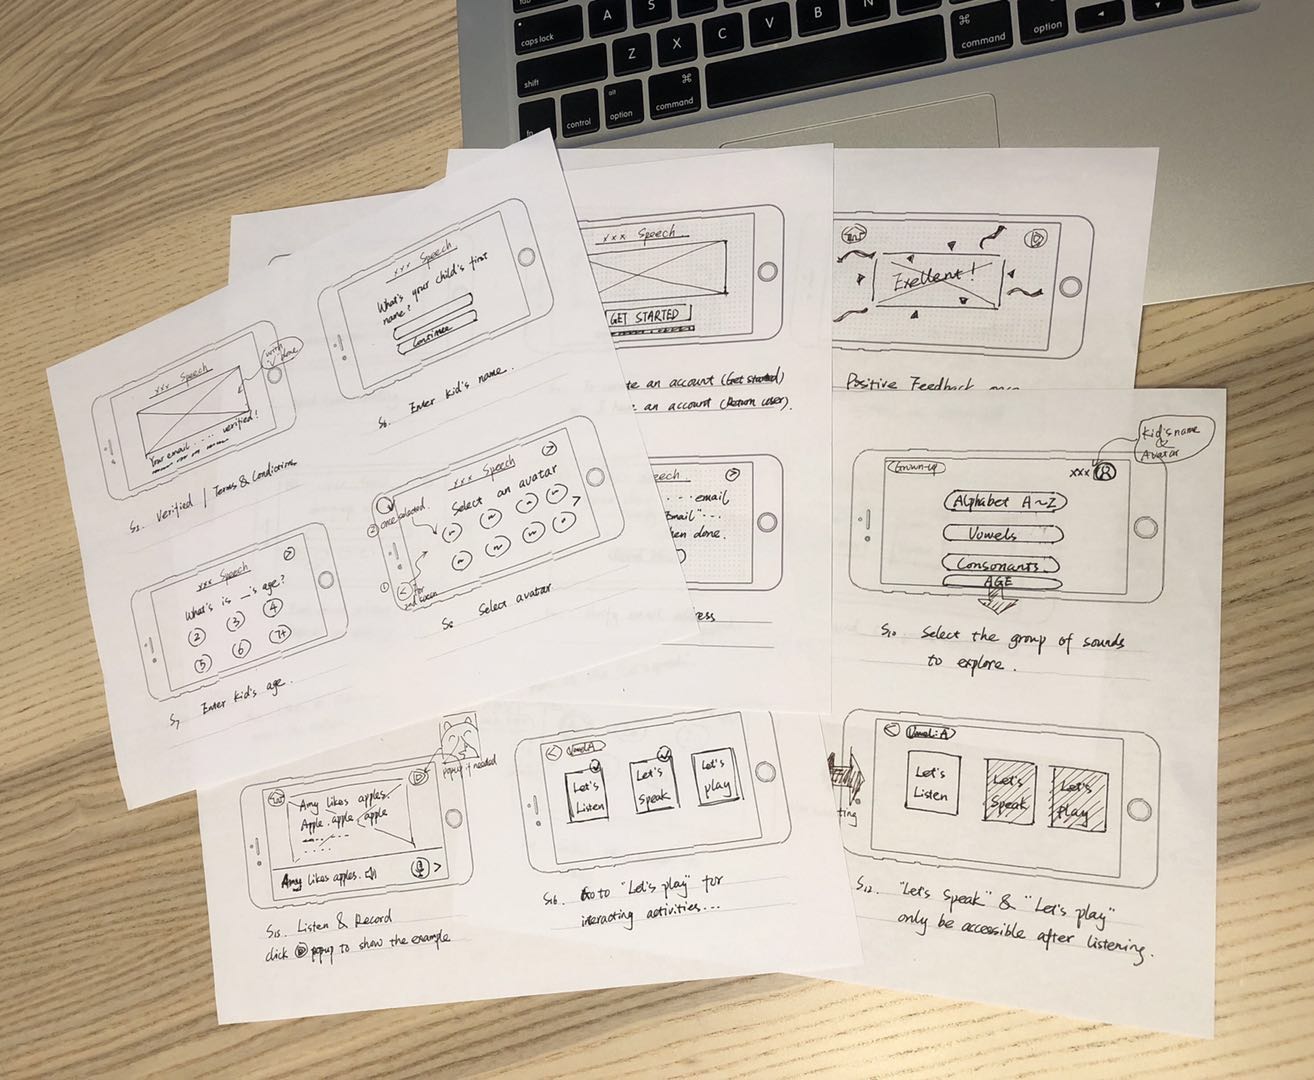 A
S
caps lock
Z
X
C
V
B
N
⌘
command
option
shift
fn
control
alt
option
⌘
command
xxx Speech
with "√" done
Your email ..... verified!
S5. Verified / Terms & Conditions
xxx Speech
What's your child's first
name?
Continue
S6. Enter kid's name.
xxx Speech
What's is __'s age?
2 3 4
5 6 7+
S7 Enter kid's age.
xxx Speech
Select an avatar
② once selected.
①
< for
2nd screen
S8. Select avatar.
xxx Speech
GET STARTED
te an account (Get started)
an account (Return user).
eech
... email
Email"...
hen done.
ress
Exellent!
Positive Feedback once
Kid's name
Avatar
Grown-up
xxx
Alphabet A~Z
Vowels
Consonants.
AGE
S10. Select the group of sounds
to explore.
popup if needed
Amy likes apples.
Apple. apple. apple
Amy likes apples.
S15. Listen & Record
click popup to show the example
Vowel:A
Let's
Listen
Let's
Speak
Let's
play
S16. Go to "Let's play" for
interacting activities...
ting
Vowel:A
Let's
Listen
Let's
Speak
Let's
Play
S12. "Let's Speak" & "Let's play"
only be accessible after listening.